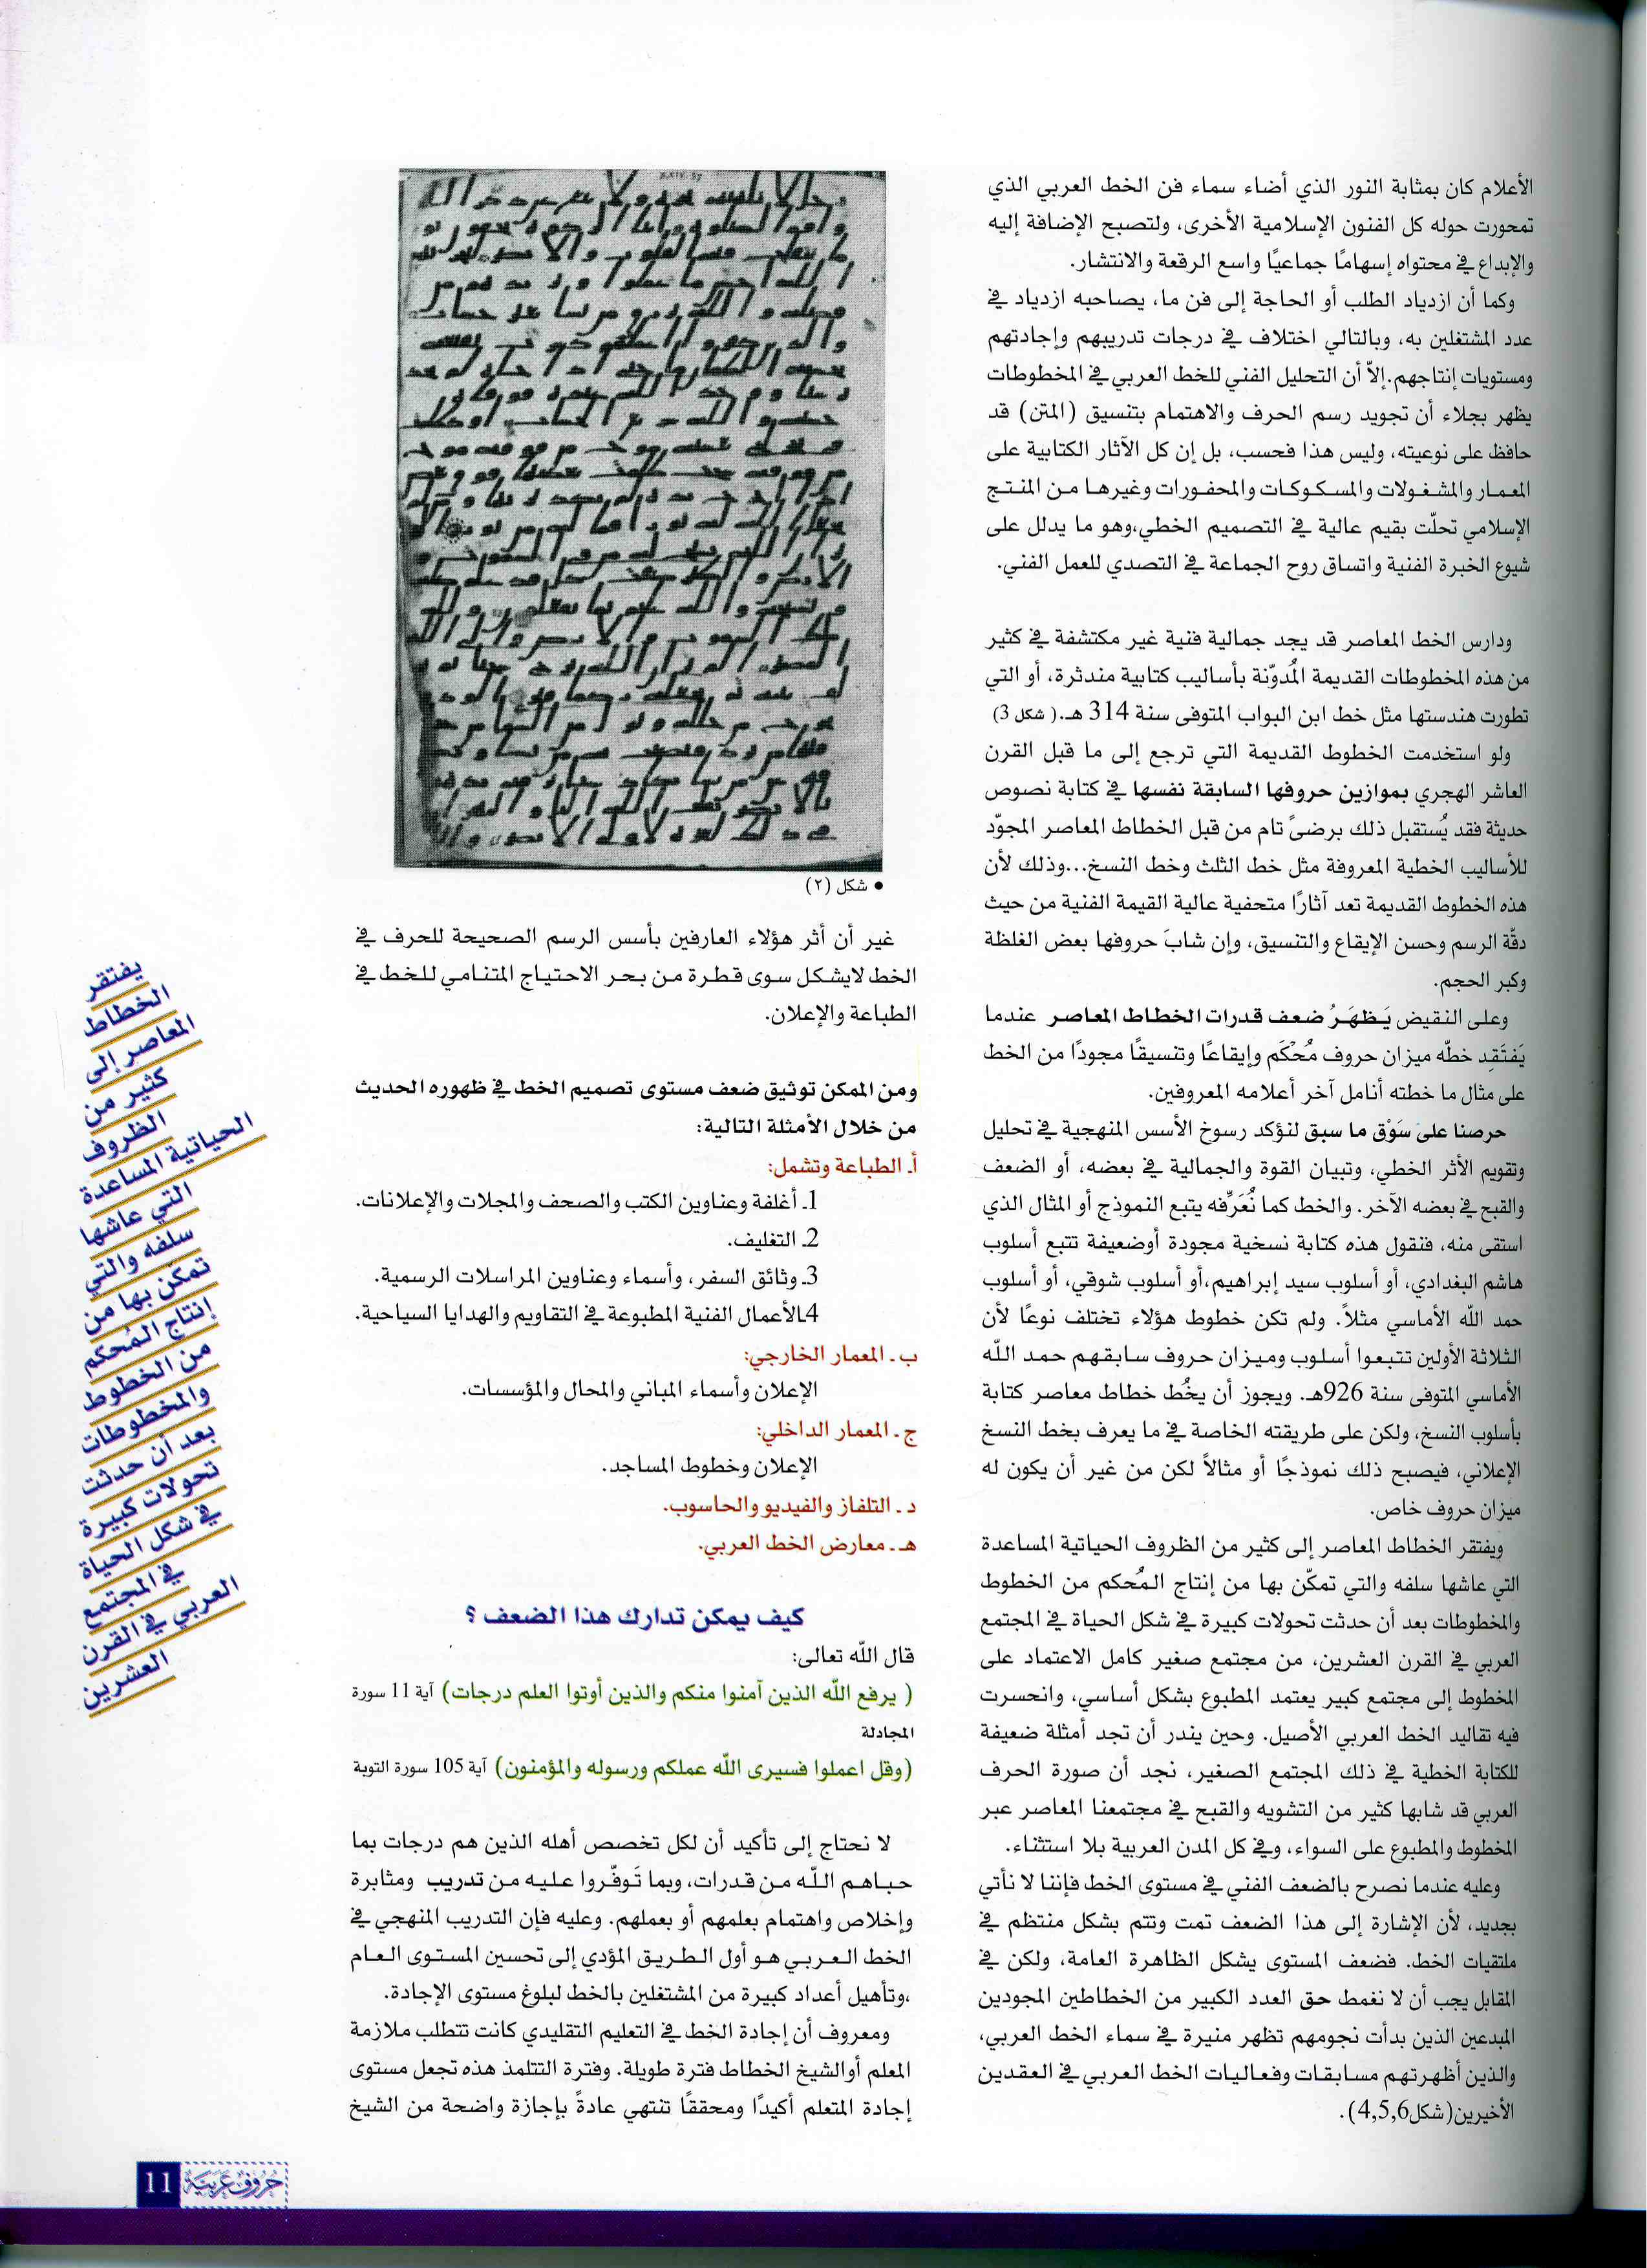 الأعلام كان بمثابة النور الذي أضاء سماء فن الخط العربي الذي
تمحورت حوله كل الفنون الإسلامية الأخرى، ولتصبح الإضافة إليه
والإبداع في محتواه إسهامًا جماعيًا واسع الرقعة والانتشار.
وكما أن ازدياد الطلب أو الحاجة إلى فن ما، يصاحبه ازدياد في
عدد المشتغلين به، وبالتالي اختلاف في درجات تدريبهم وإجادتهم
ومستويات إنتاجهم.إلاّ أن التحليل الفني للخط العربي في المخطوطات
يظهر بجلاء أن تجويد رسم الحرف والاهتمام بتنسيق (المتن) قد
حافظ على نوعيته، وليس هذا فحسب، بل إن كل الآثار الكتابية على
المعمار والمشغولات والمسكوكات والمحفورات وغيرها من المنتج
الإسلامي تحلّت بقيم عالية في التصميم الخطي،وهو ما يدلل على
شيوع الخبرة الفنية واتساق روح الجماعة في التصدي للعمل الفني.
ودارس الخط المعاصر قد يجد جمالية فنية غير مكتشفة في كثير
من هذه المخطوطات القديمة المُدوّنة بأساليب كتابية مندثرة، أو التي
تطورت هندستها مثل خط ابن البواب المتوفى سنة 314 هـ.( شكل 3)
ولو استخدمت الخطوط القديمة التي ترجع إلى ما قبل القرن
العاشر الهجري بموازين حروفها السابقة نفسها في كتابة نصوص
حديثة فقد يُستقبل ذلك برضىً تام من قبل الخطاط المعاصر المجوّد
للأساليب الخطية المعروفة مثل خط الثلث وخط النسخ...وذلك لأن
هذه الخطوط القديمة تعد آثارًا متحفية عالية القيمة الفنية من حيث
دقّة الرسم وحسن الإيقاع والتنسيق، وإن شابَ حروفها بعض الغلظة
وكبر الحجم.
وعلى النقيض يَظهَرُ ضعف قدرات الخطاط المعاصر عندما
يَفتَقِد خطّه ميزان حروف مُحْكَم وإيقاعًا وتنسيقًا مجودًا من الخط
على مثال ما خطته أنامل آخر أعلامه المعروفين.
حرصنا على سَوْق ما سبق لنؤكد رسوخ الأسس المنهجية في تحليل
وتقويم الأثر الخطي، وتبيان القوة والجمالية في بعضه، أو الضعف
والقبح في بعضه الآخر. والخط كما نُعَرِّفه يتبع النموذج أو المثال الذي
استقى منه، فنقول هذه كتابة نسخية مجودة أوضعيفة تتبع أسلوب
هاشم البغدادي، أو أسلوب سيد إبراهيم،أو أسلوب شوقي، أو أسلوب
حمد الله الأماسي مثلاً. ولم تكن خطوط هؤلاء تختلف نوعًا لأن
الثلاثة الأولين تتبعوا أسلوب وميزان حروف سابقهم حمد الله
الأماسي المتوفى سنة 926هـ. ويجوز أن يخُط خطاط معاصر كتابة
بأسلوب النسخ، ولكن على طريقته الخاصة في ما يعرف بخط النسخ
الإعلاني، فيصبح ذلك نموذجًا أو مثالاً لكن من غير أن يكون له
ميزان حروف خاص.
ويفتقر الخطاط المعاصر إلى كثير من الظروف الحياتية المساعدة
التي عاشها سلفه والتي تمكّن بها من إنتاج المُحكم من الخطوط
والمخطوطات بعد أن حدثت تحولات كبيرة في شكل الحياة في المجتمع
العربي في القرن العشرين، من مجتمع صغير كامل الاعتماد على
المخطوط إلى مجتمع كبير يعتمد المطبوع بشكل أساسي، وانحسرت
فيه تقاليد الخط العربي الأصيل. وحين يندر أن تجد أمثلة ضعيفة
للكتابة الخطية في ذلك المجتمع الصغير، نجد أن صورة الحرف
العربي قد شابها كثير من التشويه والقبح في مجتمعنا المعاصر عبر
المخطوط والمطبوع على السواء، وفي كل المدن العربية بلا استثناء.
وعليه عندما نصرح بالضعف الفني في مستوى الخط فإننا لا نأتي
بجديد، لأن الإشارة إلى هذا الضعف تمت وتتم بشكل منتظم في
ملتقيات الخط. فضعف المستوى يشكل الظاهرة العامة، ولكن في
المقابل يجب أن لا نغمط حق العدد الكبير من الخطاطين المجودين
المبدعين الذين بدأت نجومهم تظهر منيرة في سماء الخط العربي،
والذين أظهرتهم مسابقات وفعاليات الخط العربي في العقدين
الأخيرين(شكل4,5,6).
• شكل (٢)
غير أن أثر هؤلاء العارفين بأسس الرسم الصحيحة للحرف في
الخط لايشكل سوى قطرة من بحر الاحتياج المتنامي للخط في
الطباعة والإعلان.
ومن الممكن توثيق ضعف مستوى تصميم الخط في ظهوره الحديث
من خلال الأمثلة التالية:
أ. الطباعة وتشمل:
1. أغلفة وعناوين الكتب والصحف والمجلات والإعلانات.
2. التغليف.
3. وثائق السفر، وأسماء وعناوين المراسلات الرسمية.
4.الأعمال الفنية المطبوعة في التقاويم والهدايا السياحية.
ب . المعمار الخارجي:
الإعلان وأسماء المباني والمحال والمؤسسات.
ج . المعمار الداخلي:
الإعلان وخطوط المساجد.
د . التلفاز والفيديو والحاسوب.
هـ . معارض الخط العربي.
كيف يمكن تدارك هذا الضعف ؟
قال الله تعالى:
( يرفع الله الذين آمنوا منكم والذين أوتوا العلم درجات) آية 11 سورة
المجادلة
(وقل اعملوا فسيرى الله عملكم ورسوله والمؤمنون) آية 105 سورة التوبة
لا نحتاج إلى تأكيد أن لكل تخصص أهله الذين هم درجات بما
حباهم الله من قدرات، وبما تَوفّروا عليه من تدريب ومثابرة
وإخلاص واهتمام بعلمهم أو بعملهم. وعليه فإن التدريب المنهجي في
الخط العربي هو أول الطريق المؤدي إلى تحسين المستوى العام
،وتأهيل أعداد كبيرة من المشتغلين بالخط لبلوغ مستوى الإجادة.
ومعروف أن إجادة الخط في التعليم التقليدي كانت تتطلب ملازمة
المعلم أوالشيخ الخطاط فترة طويلة. وفترة التتلمذ هذه تجعل مستوى
إجادة المتعلم أكيدًا ومحققًا تنتهي عادةً بإجازة واضحة من الشيخ
يفتقر
الخطاط
المعاصر إلى
كثير من
الظروف
الحياتية المساعدة
التي عاشها
سلفه والتي
تمكّن بها من
إنتاج المُحكم
من الخطوط
والمخطوطات
بعد أن حدثت
تحولات كبيرة
في شكل الحياة
في المجتمع
العربي في القرن
العشرين
حروف عربية
11